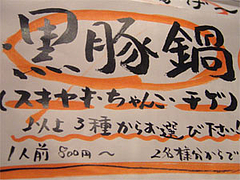 黒豚鍋
(スキヤキ・ちゃんこ・チゲ)
以上3種からお選び下さい!
1人前 800円〜 2名様分からで